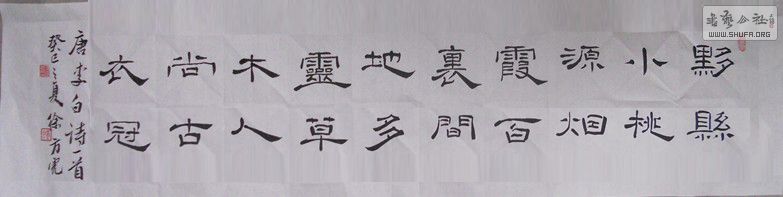 黟縣
小桃
源烟
霞百
裏間
地多
靈草
木人
尚古
衣冠
唐李白诗一首
癸巳之夏徐方
書藝公社
WWW.SHUFA.ORG